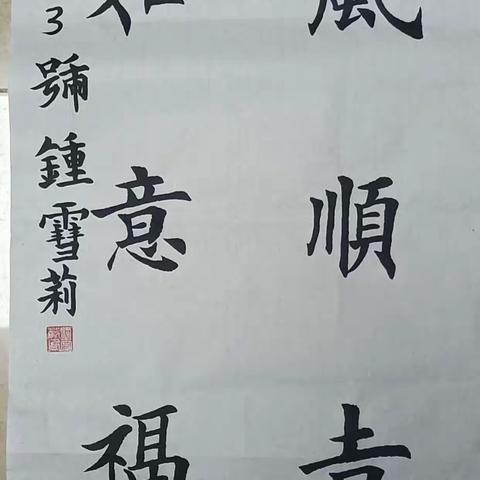 風順吉
意福
3號鍾雪莉